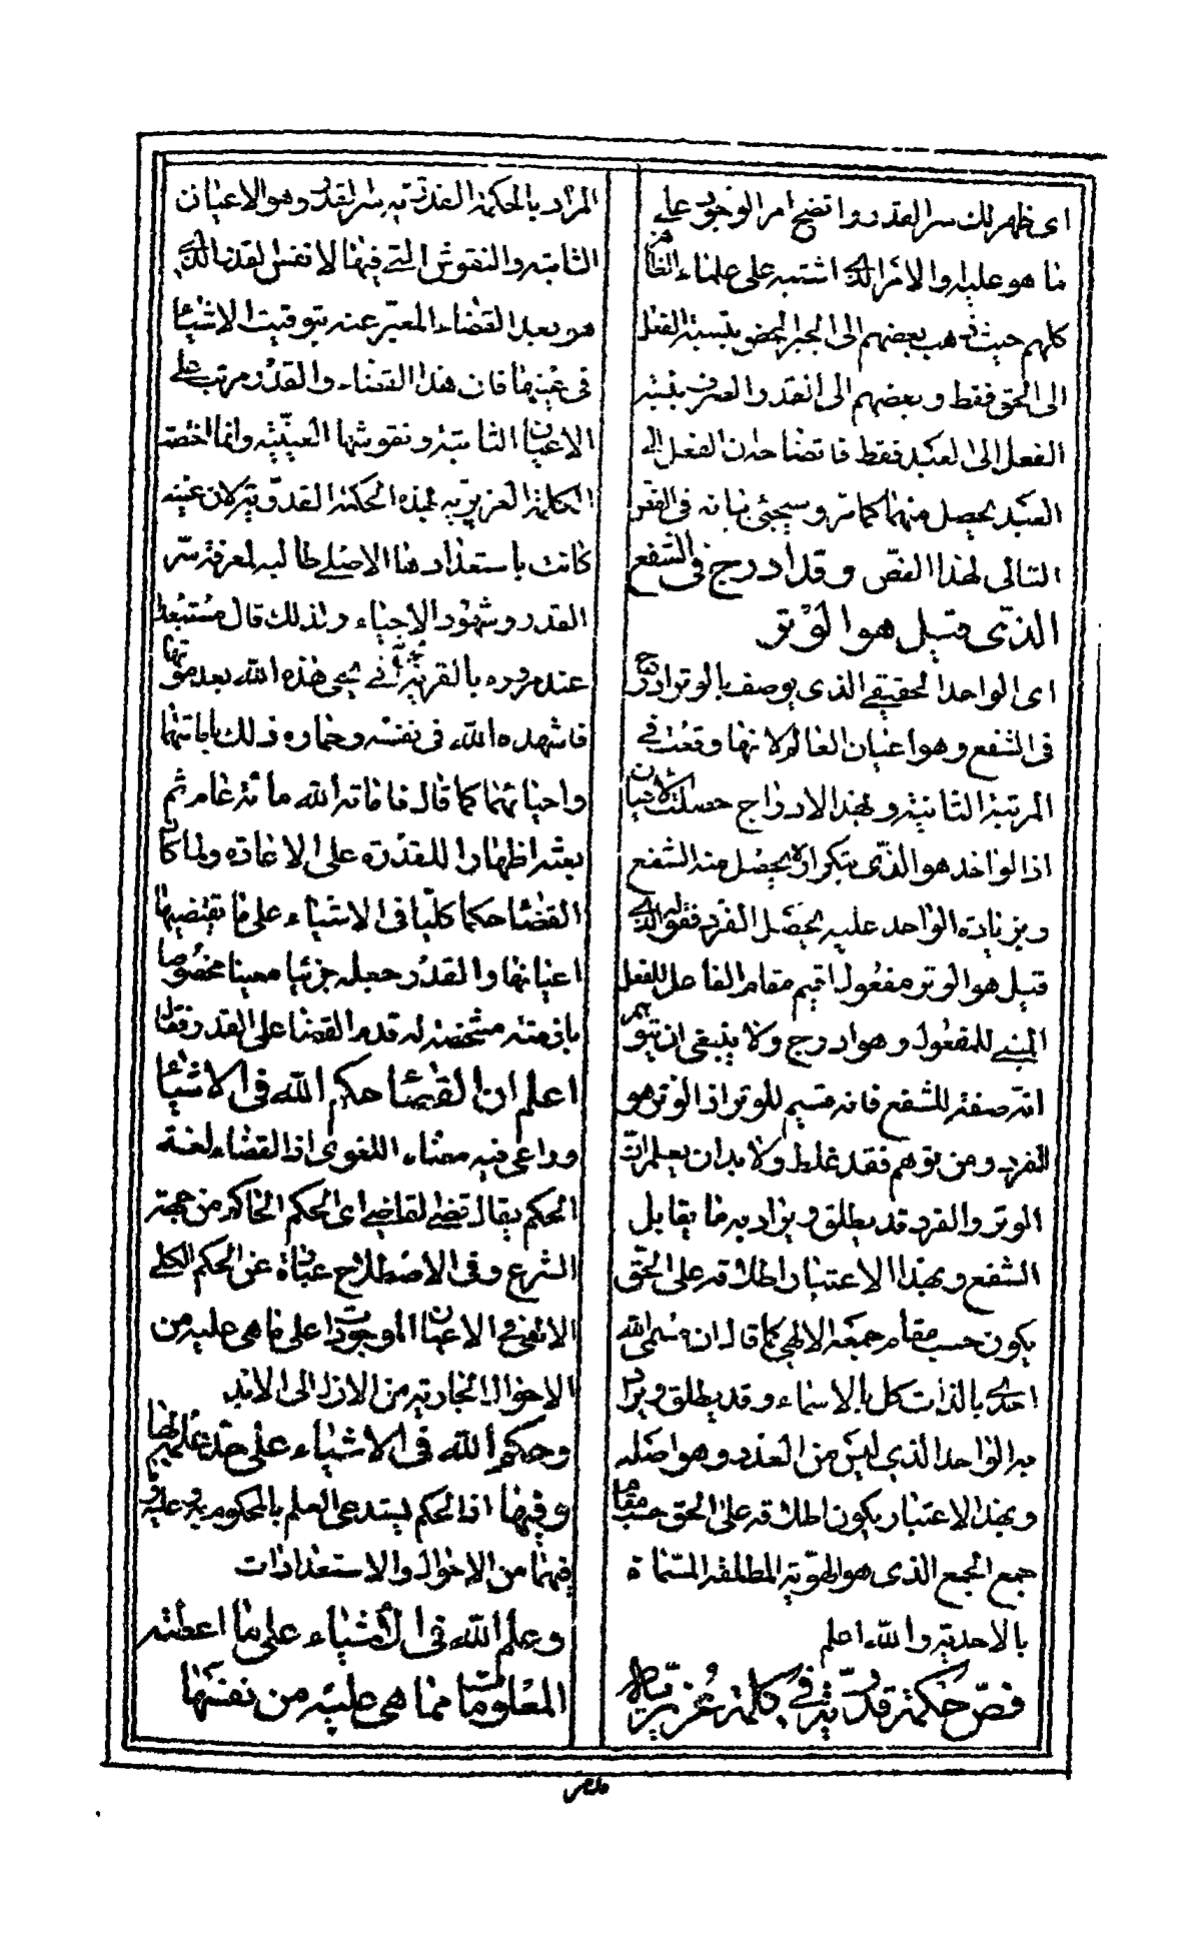 اى ظهر لك سر القدر واتضح امر الوجود على
ما هو عليه والامر الذى اشتبه على علماء الظاهر
كلهم حيث ذهب بعضهم الى الجبر المحض بنسبة الفعل
الى الحق فقط وبعضهم الى القدر الصرف بنسبة
الفعل الى العبد فقط فاتضاحه ان الفعل الى
العبد يحصل منهما كما مر وسيجئ بيانه فى الفص
التالى لهذا الفص وقد ادرج فى الشفع
الذى قيل هو الوتر
اى الواحد الحقيقى الذى يوصف بالوتر ادرج
فى الشفع وهو اعيان العالم لانها وقعت فى
المرتبة الثانية وبهذا الادراج حصلت الاعيان
اذ الواحد هو الذى بتكراره يحصل منه الشفع
وبزيادة الواحد عليه يحصل الفرد فقوله الذى
قيل هو الوتر مفعول اقيم مقام الفاعل للفعل
المبنى للمفعول وهو ادرج ولا ينبغى ان يتوهم
انه صفة للشفع فانه قسيم للوتر اذ الوتر هو
الفرد ومن توهم فقد غلط ولا بد ان يعلم ان
الوتر والفرد قد يطلق ويراد به ما يقابل
الشفع وبهذا الاعتبار اطلاقه على الحق
يكون حسب مقام جمعه الالهى كما قال ان مسمى الله
احدى بالذات كل بالاسماء وقد يطلق ويراد
به الواحد الذى ليس من العدد وهو اصله
وبهذا الاعتبار يكون اطلاقه على الحق حسب مقام
جمع الجمع الذى هو الهوية المطلقة المسماة
بالاحدية والله اعلم
فص حكمة قدرية فى كلمة عزيرية
المراد بالحكمة القدرية سر القدر وهو الاعيان
الثابتة والنقوش التى فيها لا نفس القدر الذى
هو بعد القضاء المعبر عنه بتوقيت الاشياء
فى عينها فان هذا القضاء والقدر مرتب على
الاعيان الثابتة ونقوشها الغيبية وانما اختصت
الكلمة العزيرية بهذه الحكمة القدرية لان عينه
كانت باستعدادها الاصلى طالبة لمعرفة سر
القدر وشهود الاحياء ولذلك قال مستبعدا
عند مروره بالقرية انى يحيى هذه الله بعد موتها
فاشهده الله فى نفسه وحماره ذلك باماتتهما
واحيائهما كما قال فاماته الله مائة عام ثم
بعثه اظهارا للقدرة على الاعادة ولما كان
القضا حكما كليا فى الاشياء على ما يقتضيها
اعيانها والقدر جعله جزئيا معينا مخصوصا
بازمنة مشخصة له قدم القضا على القدر فقال
اعلم ان القضا حكم الله فى الاشياء
وراعى فيه معناه اللغوى اذ القضاء لغة
الحكم يقال قضى القاضى اى الحكم الحاكم من جهة
الشرع وفى الاصطلاح عبارة عن الحكم الكلى
الالهى فى الاعيان الموجودات على ما هى عليه من
الاحوال الجارية من الازل الى الابد
وحكم الله فى الاشياء على حد علمه بها
وفيها اذ الحكم يستدعى العلم بالمحكوم به وعليه وما
فيهما من الاحوال والاستعدادات
وعلم الله فى الاشياء على ما اعطته
المعلومات مما هى عليه من نفسها